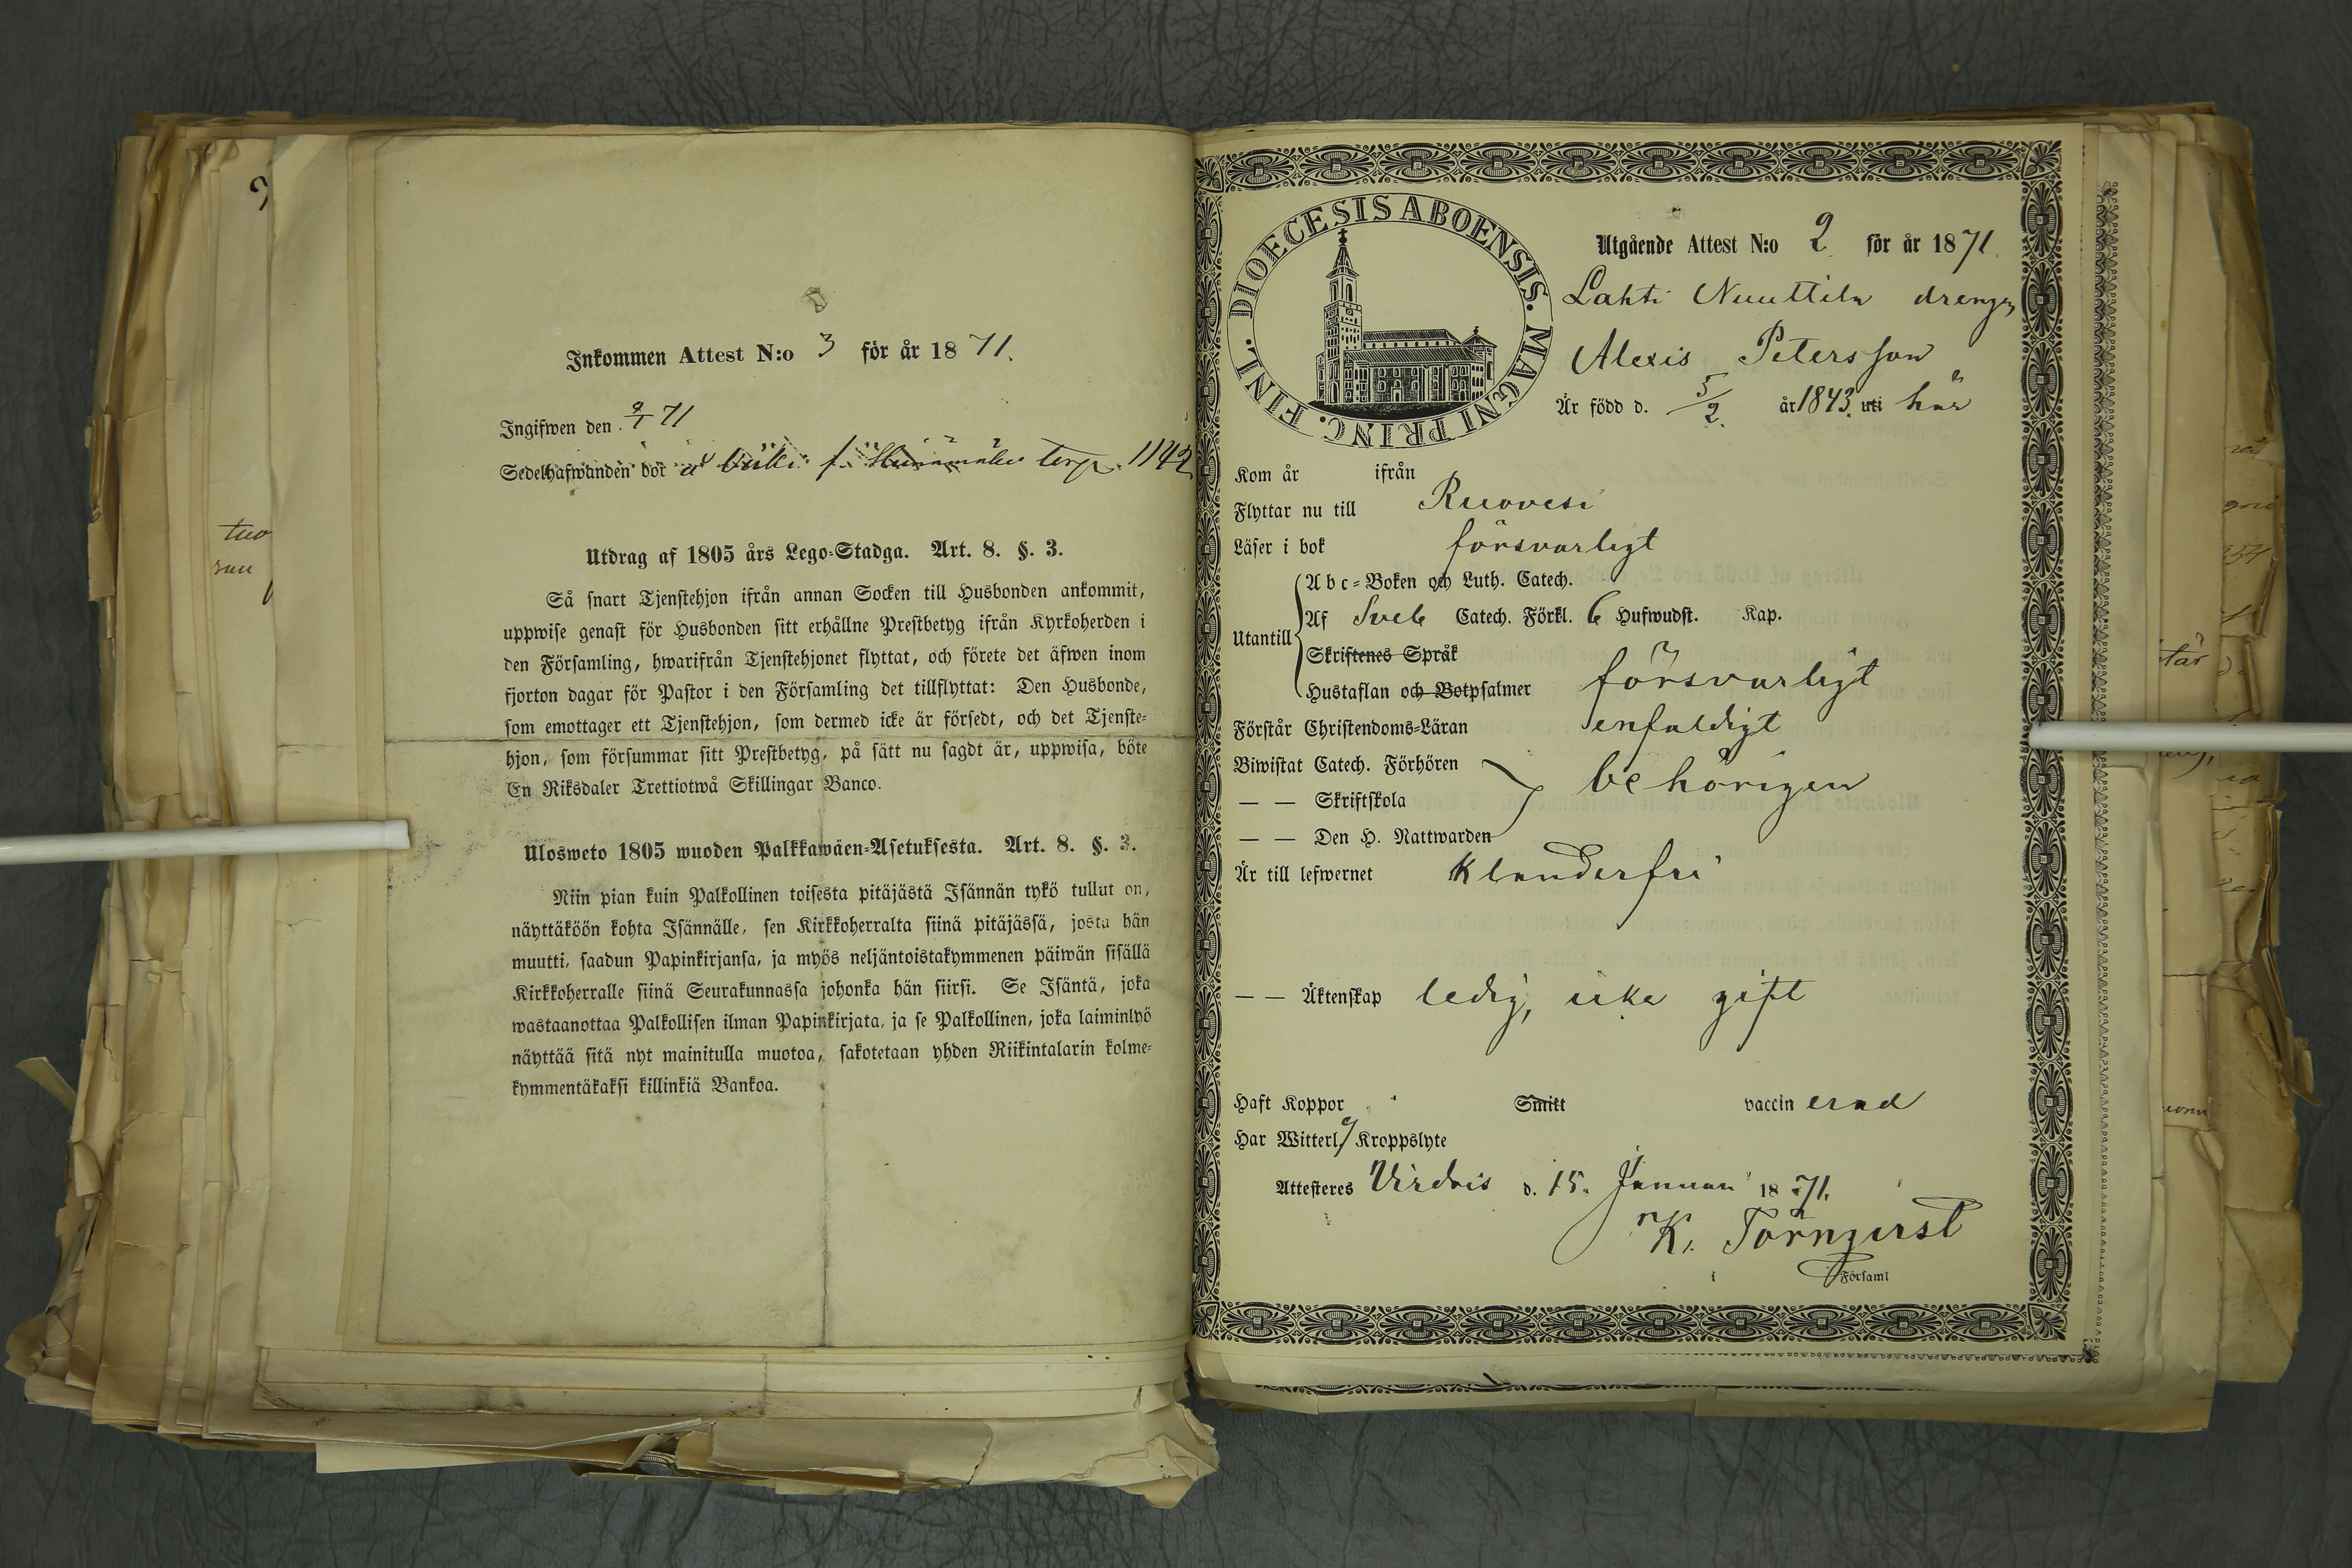 Inkommen Attest N:o 3 för år 1871.
Ingifwen den 9/1 71
Sedelhafwanden bor å torp. 1142
Utdrag af 1805 års Lego-Stadga. Art. 8. §. 3.
Så snart Tjenstehjon ifrån annan Socken till Husbonden ankommit,
uppwise genast för Husbonden sitt erhållne Prestbetyg ifrån Kyrkoherden i
den Församling, hwarifrån Tjenstehjonet flyttat, och förete det äfwen inom
fjorton dagar för Pastor i den Församling det tillflyttat: Den Husbonde,
som emottager ett Tjenstehjon, som dermed icke är försedt, och det Tjenste-
hjon, som försummar sitt Prestbetyg, på sätt nu sagdt är, uppwisa, böte
En Riksdaler Trettiotwå Skillingar Banco.
Ulosweto 1805 wuoden Palkkawäen-Asetuksesta. Art. 8. §. 3.
Niin pian kuin Palkollinen toisesta pitäjästä Isännän tykö tullut on,
näyttäköön kohta Isännälle, sen Kirkkoherralta siinä pitäjässä, josta hän
muutti, saadun Papinkirjansa, ja myös neljäntoistakymmenen päiwän sisällä
Kirkkoherralle siinä Seurakunnassa johonka hän siirsi. Se Isäntä, joka
wastaanottaa Palkollisen ilman Papinkirjata, ja se Palkollinen, joka laiminlyö
näyttää sitä nyt mainitulla muotoa, sakotetaan yhden Riikintalarin kolme-
kymmentäkaksi killinkiä Bankoa.
tuo
DIOECESIS ABOENSIS. MAGNI PRINC. FINL.
Utgående Attest N:o 2 för år 1871.
Lahti Nuuttila drengen
Alexis Petersson
Är född d. 5/2 år 1843 uti här
Kom år ifrån
Flyttar nu till Ruovesi
Läser i bok försvarligt
Utantill
Abc-Boken och Luth. Catech.
Af Sveb Catech. Förkl. 6 Hufwudst. Kap.
Skriftenes Språk
Hustaflan och Botpsalmer försvarligt
Förstår Christendoms-Läran enfaldigt
Biwistat Catech. Förhören
— — Skriftskola behörigen
— — Den H. Nattwarden
Är till lefwernet klanderfri
— — Äktenskap ledig, icke gift
Haft Koppor Smitt vaccinerad
Har Witterl. Kroppslyte
Attesteres Virdois d. 15. Januari 1871.
K. Törnqvist
i Församl